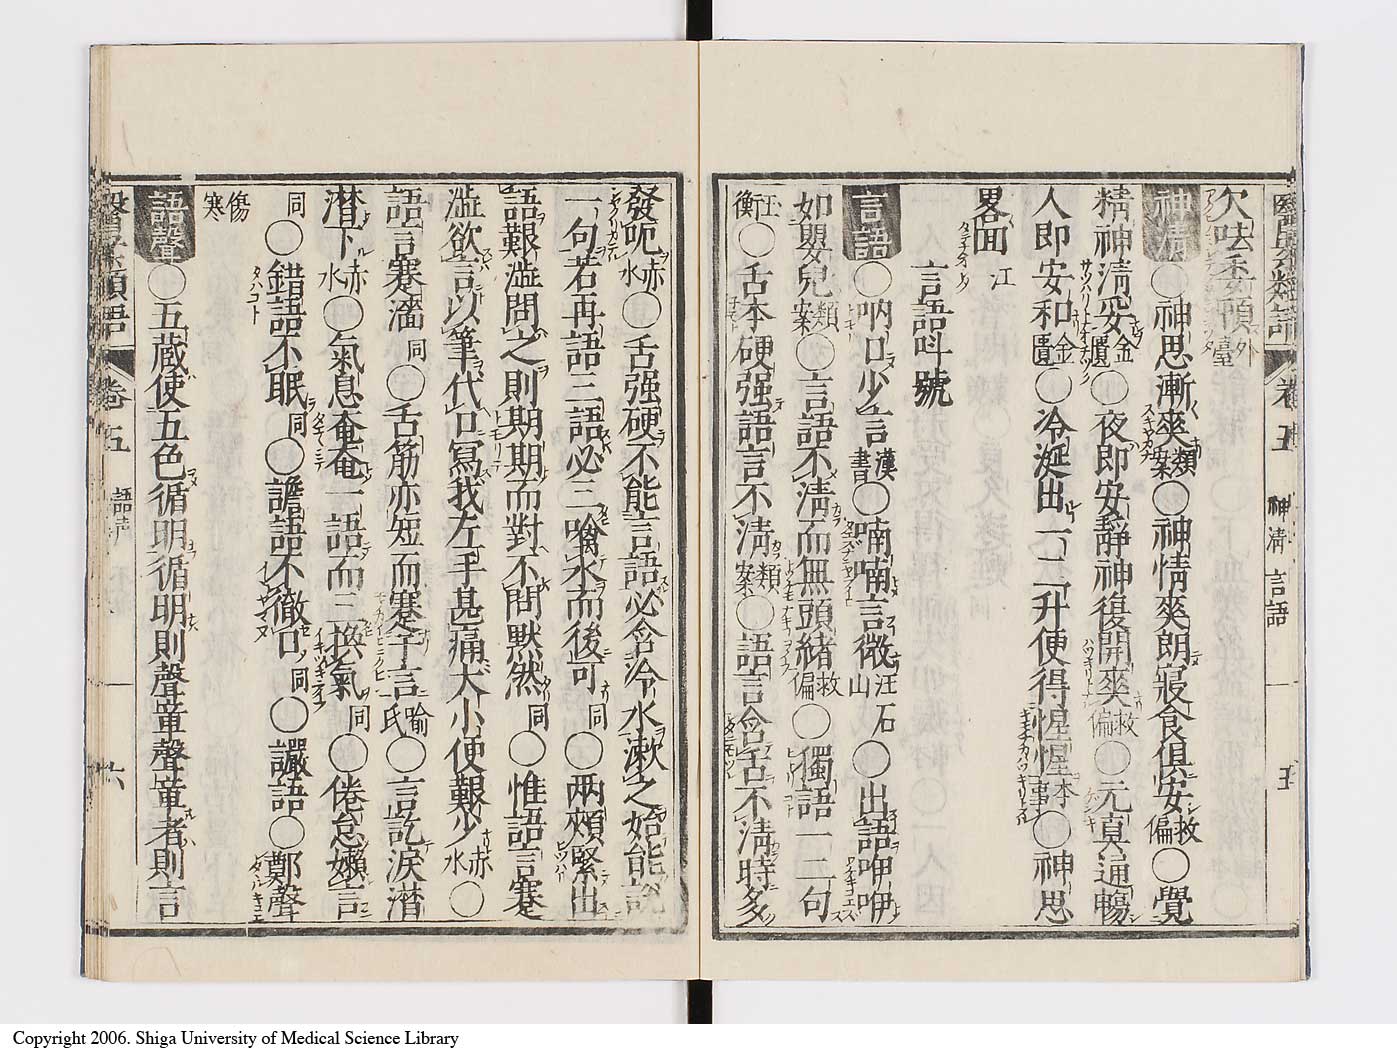 欠呿委頓外臺
神清○神思漸爽類案○神情爽朗寢食俱安救偏○覺
精神清妥金匱○夜即安靜神復開爽救偏○元真通暢
人即安和金匱○冷涎出一二升便得惺惺本事○神思
畧面江
言語呌號
言語○吶口少言漢書○喃喃言微汪石山○出語呻吚
如嬰兒類案○言語不清而無頭緒救偏○獨語一二句
汪衡○舌本硬强語言不清類案○語言含舌不清時多
醫學類語 卷五 神清 言語 五
發呃赤水○舌强硬不能言語必含冷水漱之始能說
一句若再語三語必三噙水而後可同○兩頰緊出
語艱澁問之則期期而對不問默然同○惟語言蹇
澁欲言以筆代口寫我左手甚痛大小便艱少赤水○
語言蹇濇同○舌筋亦短而蹇于言喻氏○言訖淚潸
潸下赤水○氣息奄奄一語而三換氣同○倦怠嬾言
同○錯語不眠同○譫語不徹口同○讝語○鄭聲
傷寒
語聲○五藏使五色循明循明則聲章聲章者則言
醫學類語 卷五 語聲 六
Copyright 2006. Shiga University of Medical Science Library